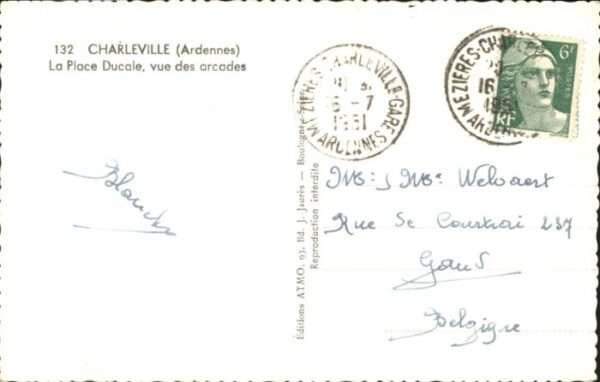 132 CHARLEVILLE (Ardennes)
La Place Ducale, vue des arcades
MEZIERES-CHARLEVILLE-GARE
16-7
1951
ARDENNES
6F
16
1951
RF
Blanche
Editions ATMO, 93, Bd. J. Jaurès — Boulogne
Reproduction interdite
Mr: & Me: Welvaert
Rue de Courtrai 237
Gand
Belgique